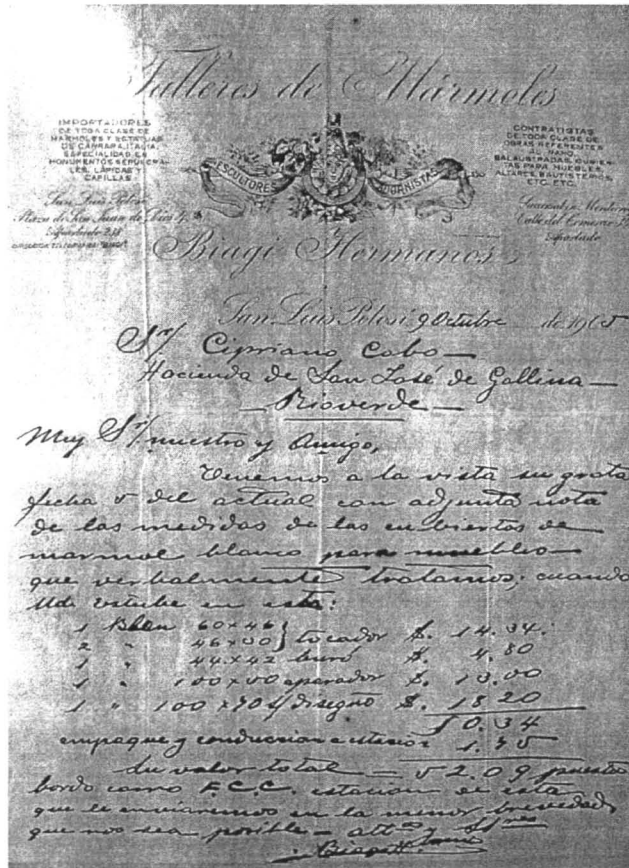 Talleres de Mármoles
IMPORTADORES
DE TODA CLASE DE
MARMOLES Y ESTATUAS
DE CARRARA, ITALIA,
ESPECIALIDAD EN
MONUMENTOS SEPULCRA-
LES, LAPIDAS Y
CAPILLAS.
San Luis Potosí
Plaza de San Juan de Dios
Apartado
ESCULTORES ORNATISTAS
CONTRATISTAS
DE TODA CLASE DE
OBRAS REFERENTES
AL RAMO.
BALAUSTRADAS, CUBIER-
TAS PARA MUEBLES,
ALTARES, BAUTISTERIOS,
ETC. ETC.
Sucursal en
Calle del Comercio
Apartado
Biagi Hermanos
San Luis Potosí 9 Octubre de 1905
Sr/ Cipriano Cobo —
Hacienda de San José de Gallina —
— Rioverde —
Muy Sr/ nuestro y Amigo,
Tenemos a la vista su grata
fecha 5 del actual con adjunta nota
de las medidas de las cubiertas de
marmol blanco para muebles
que verbalmente tratamos, cuando
Ud. estube en esta:
1 Blan 60 x 46
2 " 46 x } tocador $. 14.34.
1 " 44 x 42 buró $. 4.80
1 " 100 x aparador $. 13.00
1 " 100 x 70 s/ disegno $. 18.20
50.34
empaque y conduccion 1.75
Su valor total — 52.09 puesto
bordo carro F.C.C. estacion de esta
que le enviaremos en la menor brevedad
que nos sea posible — att^os y
Biagi H